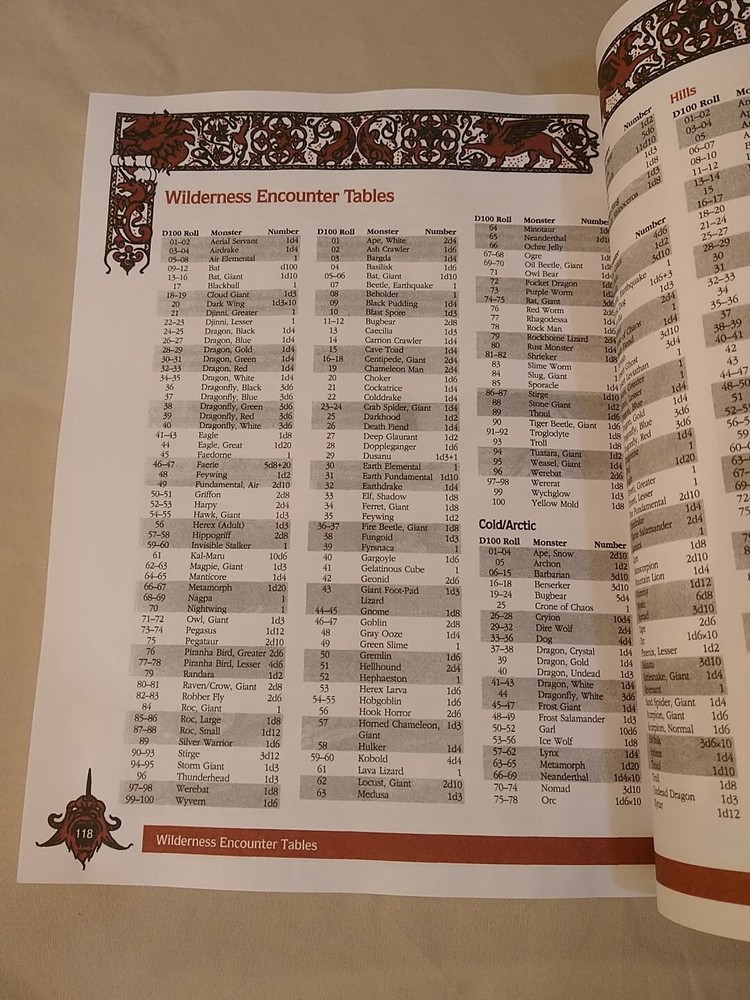 Wilderness Encounter Tables
D100 Roll Monster Number
01–02 Aerial Servant 1d4
03–04 Airdrake 1d4
05–08 Air Elemental 1
09–12 Bat d100
13–16 Bat, Giant 1d10
17 Blackball 1
18–19 Cloud Giant 1d3
20 Dark Wing 1d3×10
21 Djinni, Greater 1
22–23 Djinni, Lesser 1
24–25 Dragon, Black 1d4
26–27 Dragon, Blue 1d4
28–29 Dragon, Gold 1d4
30–31 Dragon, Green 1d4
32–33 Dragon, Red 1d4
34–35 Dragon, White 1d4
36 Dragonfly, Black 3d6
37 Dragonfly, Blue 3d6
38 Dragonfly, Green 3d6
39 Dragonfly, Red 3d6
40 Dragonfly, White 3d6
41–43 Eagle 1d8
44 Eagle, Great 1d20
45 Faedorne 1
46–47 Faerie 5d8+20
48 Feywing 1d2
49 Fundamental, Air 2d10
50–51 Griffon 2d8
52–53 Harpy 2d4
54–55 Hawk, Giant 1d3
56 Herex (Adult) 1d3
57–58 Hippogriff 2d8
59–60 Invisible Stalker 1
61 Kal-Maru 10d6
62–63 Magpie, Giant 1d3
64–65 Manticore 1d4
66–67 Metamorph 1d20
68–69 Nagpa 1
70 Nightwing 1
71–72 Owl, Giant 1d3
73–74 Pegasus 1d12
75 Pegataur 2d10
76 Piranha Bird, Greater 2d6
77–78 Piranha Bird, Lesser 4d6
79 Randara 1d2
80–81 Raven/Crow, Giant 2d8
82–83 Robber Fly 2d6
84 Roc, Giant 1
85–86 Roc, Large 1d8
87–88 Roc, Small 1d12
89 Silver Warrior 1d6
90–93 Stirge 3d12
94–95 Storm Giant 1d3
96 Thunderhead 1d3
97–98 Werebat 1d8
99–100 Wyvern 1d6
D100 Roll Monster Number
01 Ape, White 2d4
02 Ash Crawler 1d6
03 Bargda 1d4
04 Basilisk 1d6
05–06 Bat, Giant 1d10
07 Beetle, Earthquake 1
08 Beholder 1
09 Black Pudding 1d4
10 Blast Spore 1d3
11–12 Bugbear 2d8
13 Caecilia 1d3
14 Carrion Crawler 1d4
15 Cave Toad 1d4
16–18 Centipede, Giant 2d4
19 Chameleon Man 2d4
20 Choker 1d6
21 Cockatrice 1d4
22 Colddrake 1d4
23–24 Crab Spider, Giant 1d4
25 Darkhood 1d2
26 Death Fiend 1d4
27 Deep Glaurant 1d2
28 Doppleganger 1d6
29 Dusanu 1d3+1
30 Earth Elemental 1
31 Earth Fundamental 1d10
32 Earthdrake 1d4
33 Elf, Shadow 1d8
34 Ferret, Giant 1d8
35 Feywing 1d2
36–37 Fire Beetle, Giant 1d8
38 Fungoid 1d3
39 Fyrsnaca 1
40 Gargoyle 1d6
41 Gelatinous Cube 1
42 Geonid 2d6
43 Giant Foot-Pad 1d3
Lizard
44–45 Gnome 1d8
46–47 Goblin 2d8
48 Gray Ooze 1d4
49 Green Slime 1
50 Gremlin 1d6
51 Hellhound 2d4
52 Hephaeston 1
53 Herex Larva 1d6
54–55 Hobgoblin 1d6
56 Hook Horror 2d6
57 Horned Chameleon, 1d3
Giant
58 Hulker 1d4
59–60 Kobold 4d4
61 Lava Lizard 1
62 Locust, Giant 2d10
63 Medusa 1d3
D100 Roll Monster
64 Minotaur
65 Neanderthal
66 Ochre Jelly
67–68 Ogre
69–70 Oil Beetle, Giant
71 Owl Bear
72 Pocket Dragon
73 Purple Worm
74–75 Rat, Giant
76 Red Worm
77 Rhagodessa
78 Rock Man
79 Rockhome Lizard
80 Rust Monster
81–82 Shrieker
83 Slime Worm
84 Slug, Giant
85 Sporacle
86–87 Stirge
88 Stone Giant
89 Thoul
90 Tiger Beetle, Giant 1d6
91–92 Troglodyte 1d8
93 Troll 1d8
94 Tuatara, Giant 1d2
95 Weasel, Giant 1d4
96 Werebat 2d6
97–98 Wererat 1d8
99 Wychglow 1d3
100 Yellow Mold 1d8
Cold/Arctic
D100 Roll Monster Number
01–04 Ape, Snow 2d10
05 Archon 1d2
06–15 Barbarian 3d10
16–18 Berserker 3d10
19–24 Bugbear 5d4
25 Crone of Chaos 1
26–28 Cryion 10d4
29–32 Dire Wolf 2d4
33–36 Dog 4d4
37–38 Dragon, Crystal 1d4
39 Dragon, Gold 1d4
40 Dragon, Undead 1d3
41–43 Dragon, White 1d4
44 Dragonfly, White 3d6
45–47 Frost Giant 1d4
48–49 Frost Salamander 1d3
50–52 Garl 10d6
53–56 Ice Wolf 1d8
57–62 Lynx 1d4
63–65 Metamorph 1d20
66–69 Neanderthal 1d4x10
70–74 Nomad 3d10
75–78 Orc 1d6x10
118
Wilderness Encounter Tables
Hills
D100 Roll
01–02
03–04
05
06–07
08–10
11–12
13–14
15
16–17
18–20
21–24
25–27
28–29
30
31
32–33
34
35–36
37
38–39
40–41
42
43
44–47
48–50
51